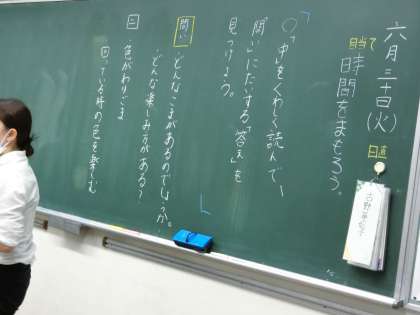 六月三十日(火)
日直
目当て
時間をまもろう。
「中」をくわしく読んで、
「問い」にたいする「答え」を
見つけよう。
問い
どんなこまがあるのでしょうか。
どんな楽しみ方がある?
三
色がわりごま
回っている時の色を楽しむ